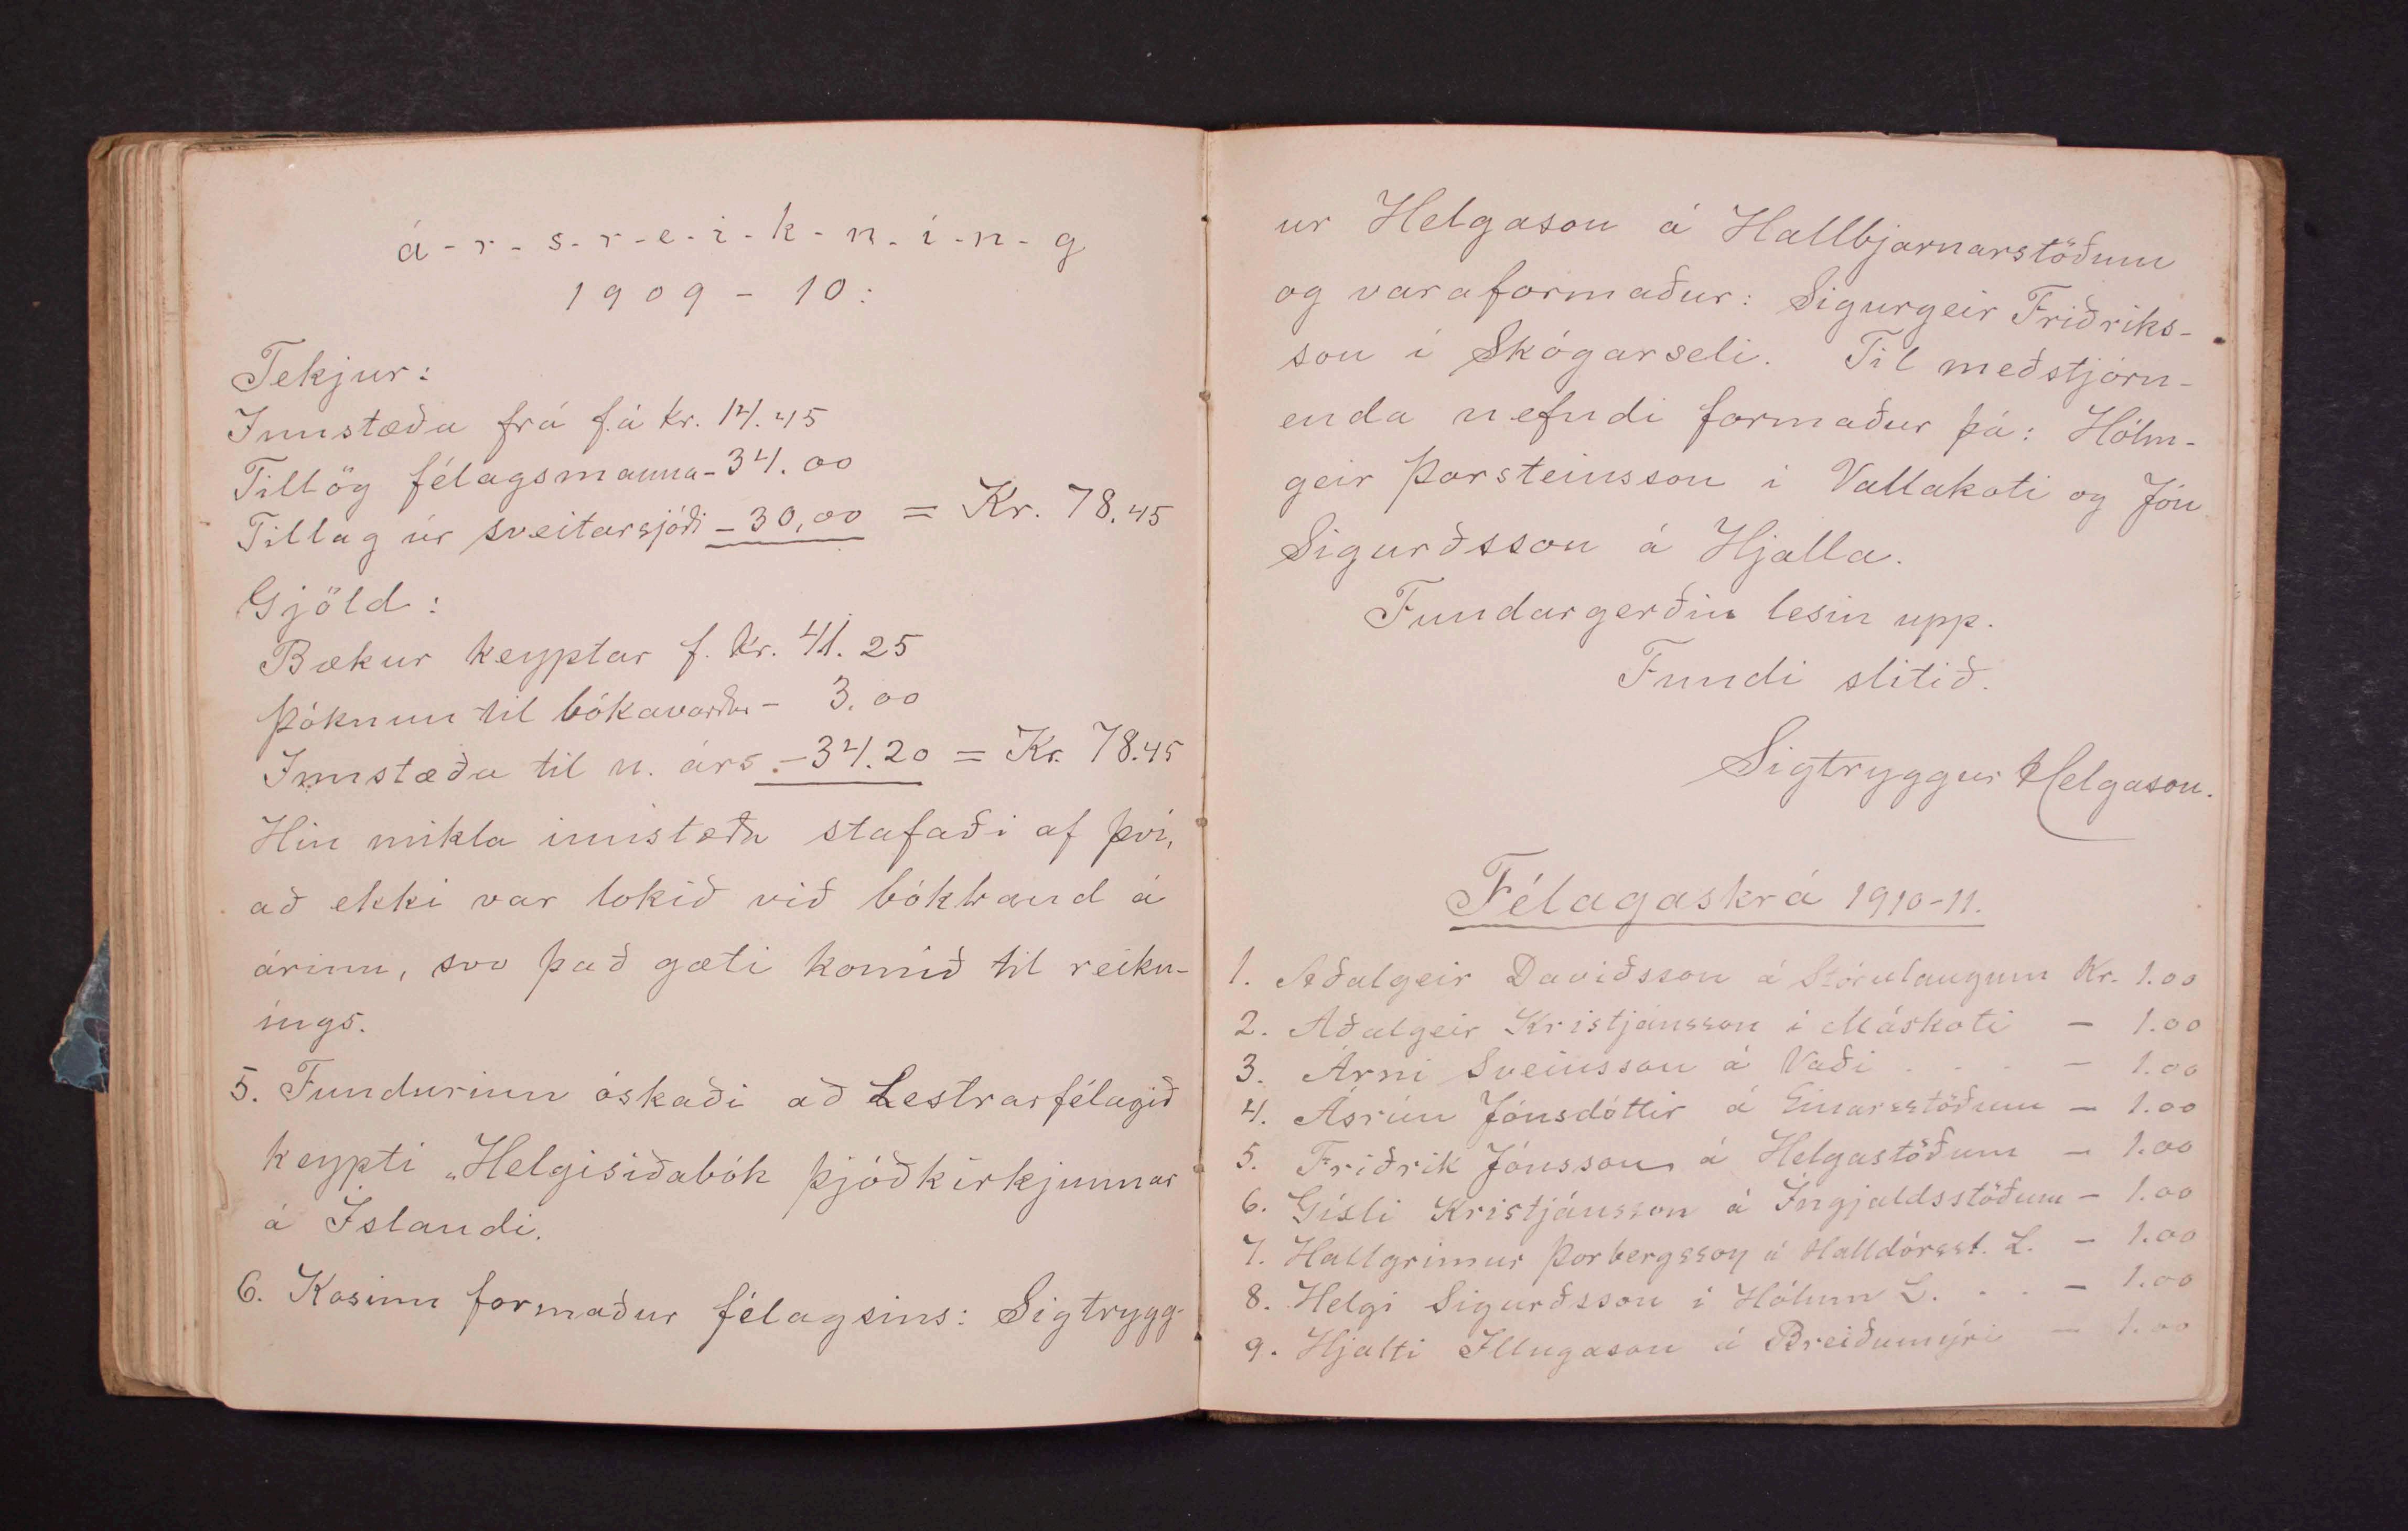 á-r-s-r-e-i-k-n-i-n-g
1909 - 10:
Tekjur:
Innstæða frá f.á kr. 14.45
Tillög félagsmanna - 34.00
Tillag úr sveitarsjóði - 30,00 = Kr. 78.45
Gjöld:
Bækur keyptar f. kr. 41.25
Þóknun til bókavarðar - 3.00
Innstæða til n. árs - 34.20 = Kr. 78.45
Hin mikla innstæða stafaði af því,
að ekki var lokið við bókband á
árinu, svo það gæti komið til reikn-
ings.
5. Fundurinn óskaði að Lestrarfélagið
keypti „Helgisiðabók þjóðkirkjunnar
á Íslandi.
6. Kosinn formaður félagsins: Sigtrygg-
ur Helgason á Hallbjarnarstöðum
og varaformaður: Sigurgeir Friðriks-
son í Skógarseli. Til meðstjórn-
enda nefndi formaður þá: Hólm-
geir Þorsteinsson í Vallakoti og Jón
Sigurðsson á Hjalla.
Fundargerðin lesin upp.
Fundi slitið.
Sigtryggur Helgason.
Félagaskrá 1910-11.
1. Aðalgeir Davíðsson á Stórulaugum Kr. 1.00
2. Aðalgeir Kristjánsson í Máskoti - 1.00
3. Árni Sveinsson á Vaði . . . - 1.00
4. Ásrún Jónsdóttir á Einarsstöðum - 1.00
5. Friðrik Jónsson á Helgastöðum - 1.00
6. Gísli Kristjánsson á Ingjaldsstöðum - 1.00
7. Hallgrímur Þorbergsson á Halldórsst. L. - 1.00
8. Helgi Sigurðsson í Hólum L. . . - 1.00
9. Hjalti Illugason á Breiðumýri - 1.00